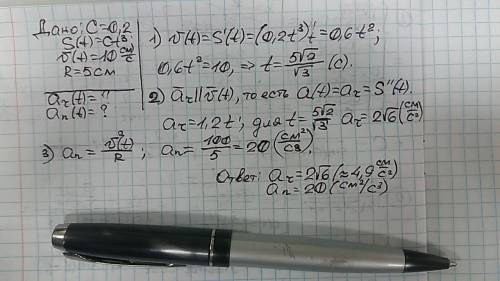 Дано: C=0,2
S(t)=Ct³;
v(t)=10 см/с
R=5см
a_τ(t)=?
a_n(t)=?
1) v(t)=S'(t)=(0,2t³)'_t=0,6t²;
0,6t²=10, ⇒ t=5√2/√3 (с).
2) a̅_τ||v̅(t), то есть a(t)=a_τ=S''(t).
a_τ=1,2t; для t=5√2/√3 a_τ=2√6(см/с²)
3) a_n=v²(t)/R; a_n=100/5=20(см²/с³).
Ответ: a_τ=2√6(≈4,9 см/с²)
a_n=20(см²/с³)